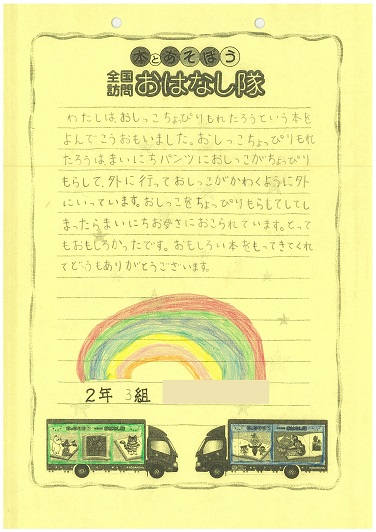 本とあそぼう
全国訪問おはなし隊
わたしは、おしっこちょっぴりもれたろうという本を
よんでこうおもいました。おしっこちょっぴりもれ
たろうは、まいにちパンツにおしっこがちょっぴり
もらして、外に行っておしっこがかわくように外
にいっています。おしっこをちょっぴりもらしてしてし
まったらまいにちお母さんにおこられています。とって
もおもしろかったです。おもしろい本をもってきてくれ
てどうもありがとうございます。
2年 3組